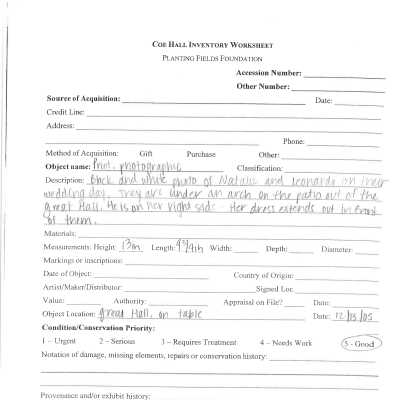 COE HALL INVENTORY WORKSHEET
PLANTING FIELDS FOUNDATION
Accession Number:
Other Number:
Source of Acquisition: Date:
Credit Line:
Address:
Phone:
Method of Acquisition: Gift Purchase Other:
Object name: Print, photographic Classification:
Description: black and white photo of Natalie and Leonardo on their
wedding day. They are under an arch on the patio out of the
great Hall. He is on her right side. Her dress extends out in front
of them.
Materials:
Measurements: Height: 13in Length: Width: Depth: Diameter:
Markings or inscriptions:
Date of Object: Country of Origin:
Artist/Maker/Distributor: Signed Loc:
Value: Authority: Appraisal on File? Date:
Object Location: great Hall, on table Date: 12/13/05
Condition/Conservation Priority:
1 – Urgent 2 – Serious 3 – Requires Treatment 4 – Needs Work 5 - Good
Notation of damage, missing elements, repairs or conservation history:
Provenance and/or exhibit history: